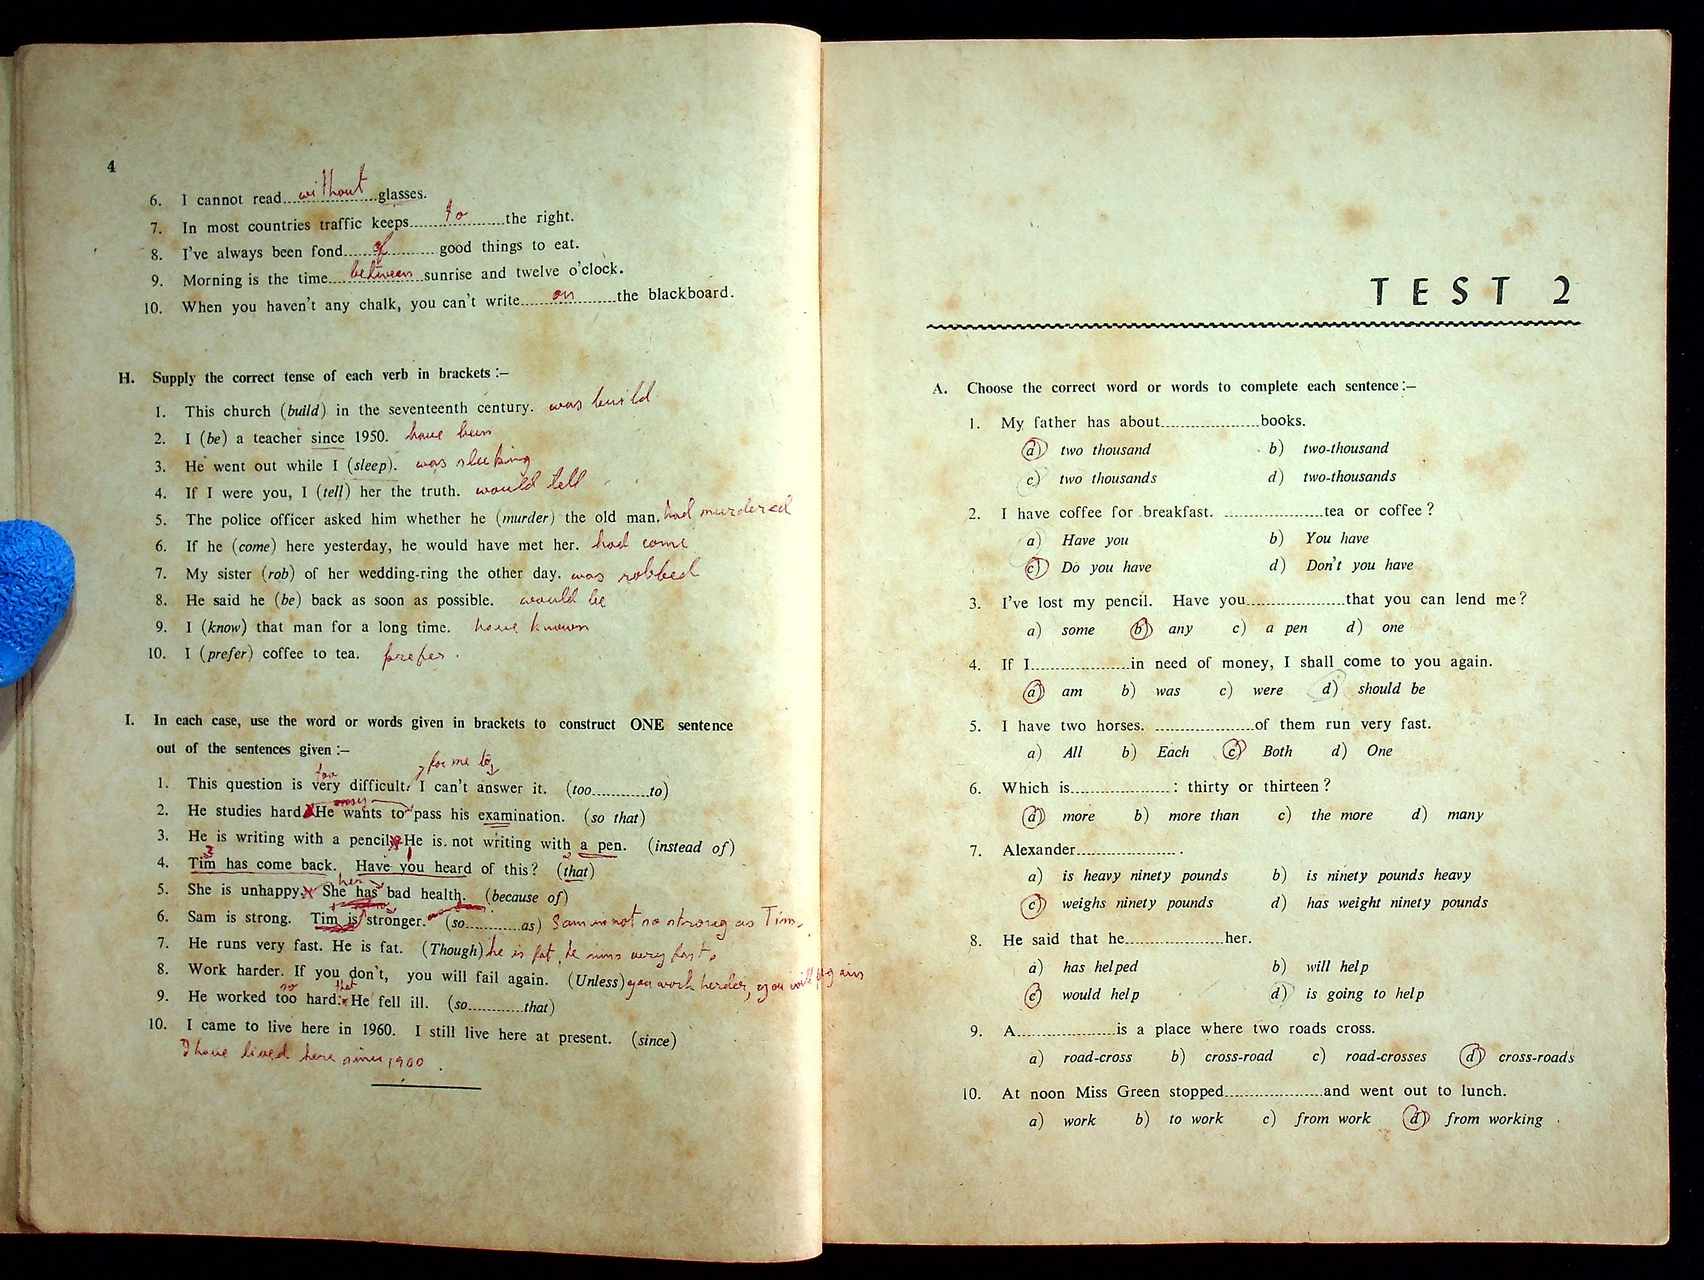 4
6. I cannot read without glasses.
7. In most countries traffic keeps to the right.
8. I've always been fond of good things to eat.
9. Morning is the time between sunrise and twelve o'clock.
10. When you haven't any chalk, you can't write on the blackboard.
H. Supply the correct tense of each verb in brackets :–
1. This church (build) in the seventeenth century. was build
2. I (be) a teacher since 1950. have been
3. He went out while I (sleep). was sleeking
4. If I were you, I (tell) her the truth. would tell
5. The police officer asked him whether he (murder) the old man. had murdered
6. If he (come) here yesterday, he would have met her. had come
7. My sister (rob) of her wedding-ring the other day. was robbed
8. He said he (be) back as soon as possible. would be
9. I (know) that man for a long time. have known
10. I (prefer) coffee to tea. prefer.
I. In each case, use the word or words given in brackets to construct ONE sentence
out of the sentences given :–
for me to
too
1. This question is very difficult. I can't answer it. (too............to)
2. He studies hard. He wants to pass his examination. (so that)
3. He is writing with a pencil. He is not writing with a pen. (instead of)
4. Tim has come back. Have you heard of this? (that)
her
5. She is unhappy. She has bad health. (because of)
6. Sam is strong. Tim is stronger. (so............as) Sam is not so strong as Tim.
7. He runs very fast. He is fat. (Though) he is fat, he runs very fast.
8. Work harder. If you don't, you will fail again. (Unless) you work harder, you will again
so that
9. He worked too hard. He fell ill. (so............that)
10. I came to live here in 1960. I still live here at present. (since)
I have lived here since 1960.
TEST 2
A. Choose the correct word or words to complete each sentence :–
1. My father has about....................books.
a) two thousand b) two-thousand
c) two thousands d) two-thousands
2. I have coffee for breakfast. ....................tea or coffee ?
a) Have you b) You have
c) Do you have d) Don't you have
3. I've lost my pencil. Have you....................that you can lend me ?
a) some b) any c) a pen d) one
4. If I....................in need of money, I shall come to you again.
a) am b) was c) were d) should be
5. I have two horses. ....................of them run very fast.
a) All b) Each c) Both d) One
6. Which is.................... : thirty or thirteen ?
a) more b) more than c) the more d) many
7. Alexander.................... .
a) is heavy ninety pounds b) is ninety pounds heavy
c) weighs ninety pounds d) has weight ninety pounds
8. He said that he....................her.
a) has helped b) will help
c) would help d) is going to help
9. A....................is a place where two roads cross.
a) road-cross b) cross-road c) road-crosses d) cross-roads
10. At noon Miss Green stopped....................and went out to lunch.
a) work b) to work c) from work d) from working